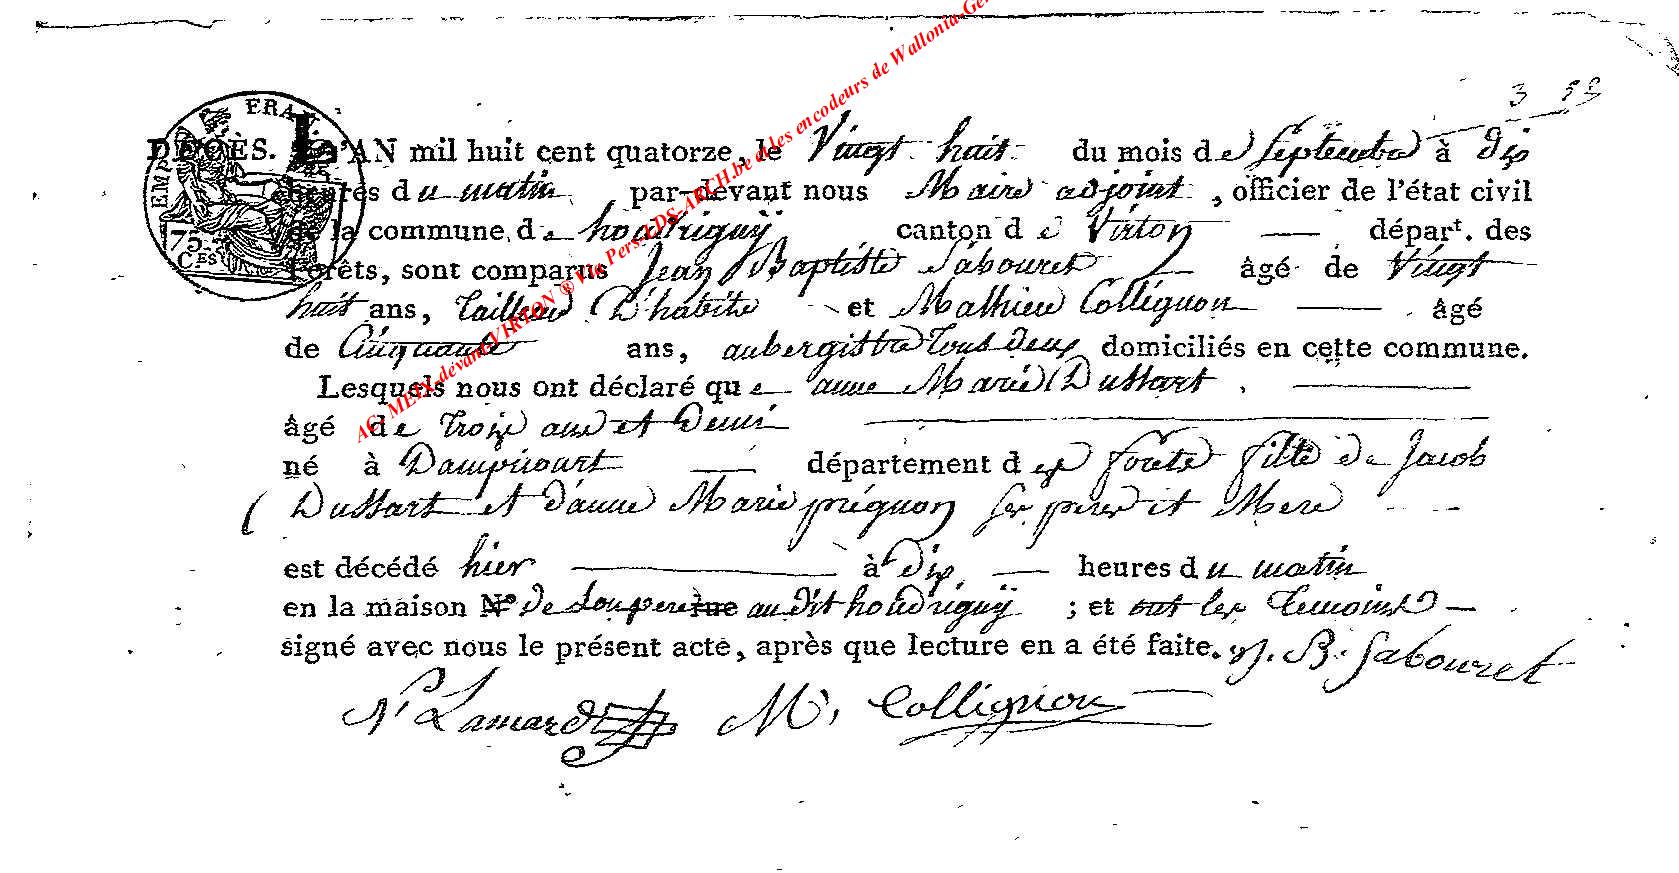 3 53
EMP FRAN
75 C.ES
DÉCÈS. L'AN mil huit cent quatorze, le Vingt huit du mois de Septembre à dix
heures du matin par-devant nous Maire adjoint, officier de l'état civil
de la commune de houdrigny canton de Virton dépar.t des
Forêts, sont comparus Jean Baptiste Sabouret âgé de Vingt
huit ans, tailleur D'habits et Mathieu Collignon âgé
de Cinquante ans, aubergiste tous deux domiciliés en cette commune.
Lesquels nous ont déclaré que anne Marie Dussart
âgé de trois ans et demi
né à Dampicourt département des forets fille de Jacob
Dussart et d'anne Marie prégnon ses pere et Mere
est décédé hier à dix heures du matin
en la maison N.o de son pere rue audit houdrigny ; et ont les temoins
signé avec nous le présent acte, après que lecture en a été faite. J. B. Sabouret
N Lamard M, Collignon
AC. METX devant VIRTON ® Via Pers LDS-ARCH.be et des encodeurs de Wallonia-Ge